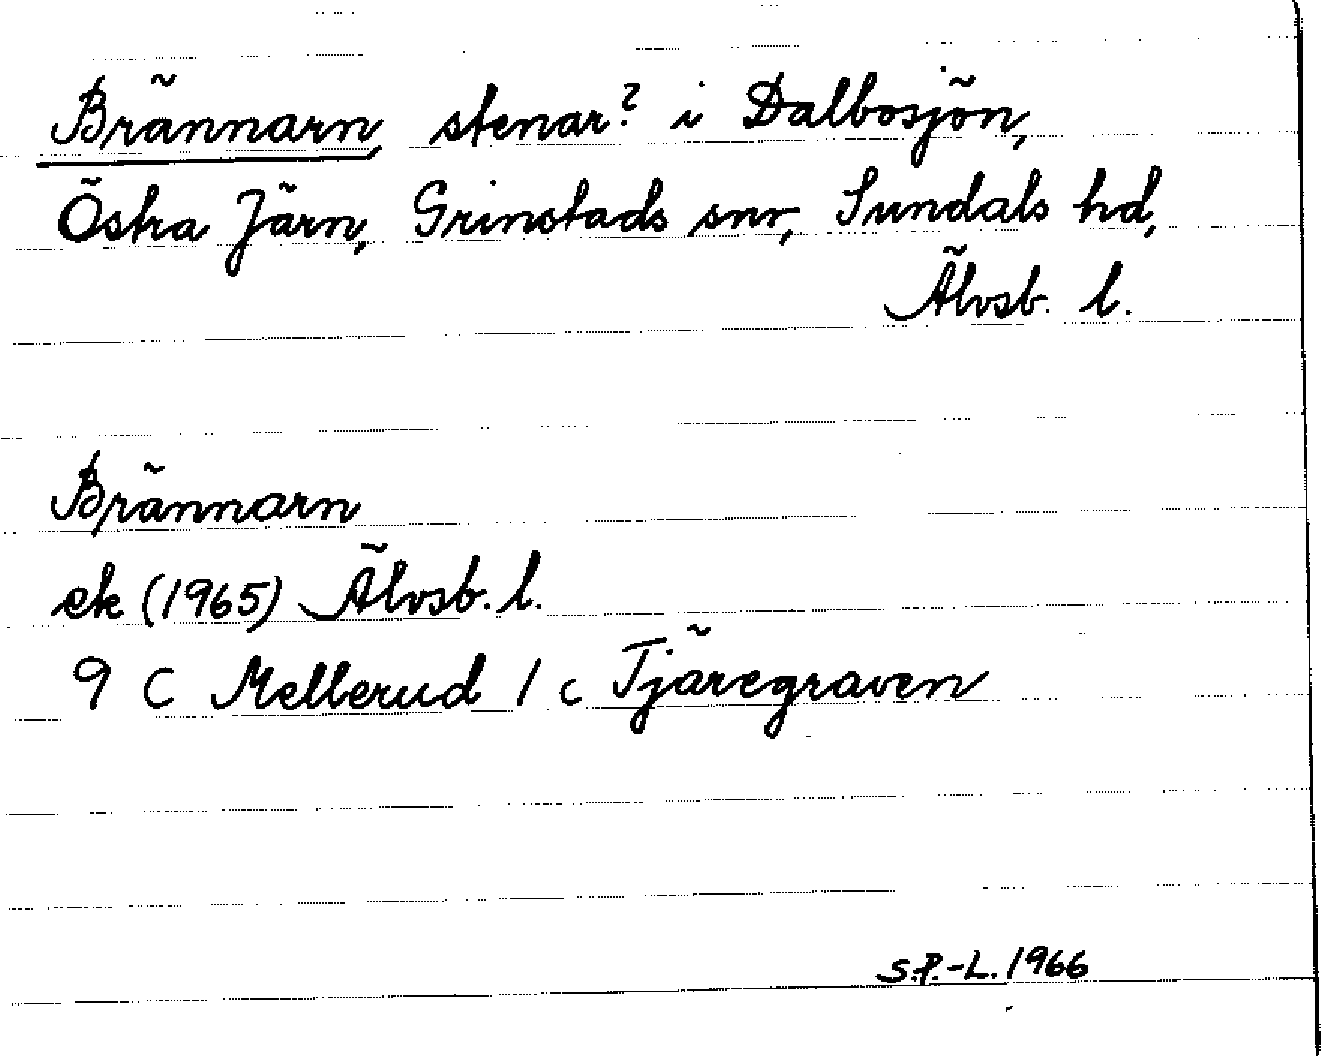 Brännarn, stenar? i Dalbosjön,
Östra Järn, Grinstads snr, Sundals hd,
Älvsb. l.
Brännarn
ek (1965) Älvsb. l.
9 C Mellerud 1 c Tjäregraven
S.P.-L. 1966